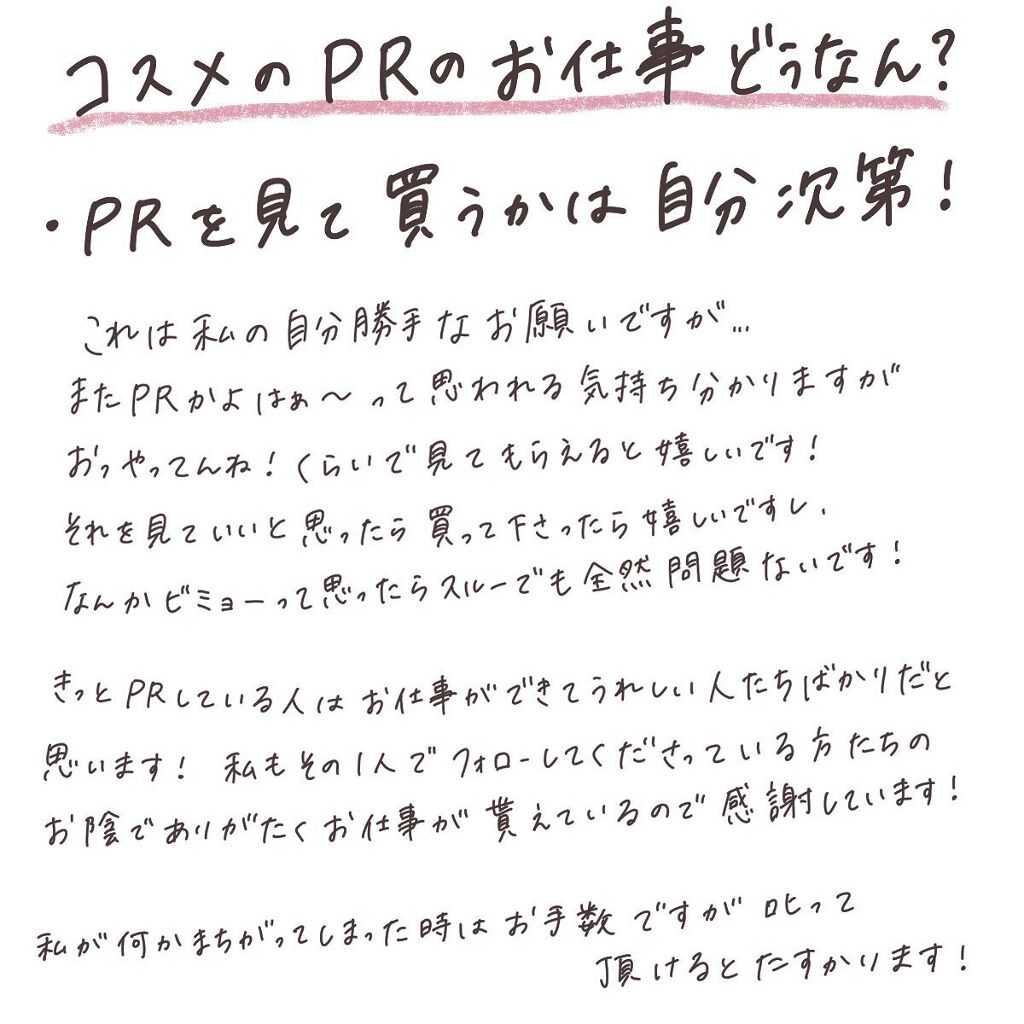 コスメのPRのお仕事どうなん?
・PRを見て買うかは自分次第!
これは私の自分勝手なお願いですが...
またPRかよはぁ〜って思われる気持ち分かりますが
おっやってんね!くらいで見てもらえると嬉しいです!
それを見ていいと思ったら買って下さったら嬉しいですし、
なんかビミョーって思ったらスルーでも全然問題ないです!
きっとPRしている人はお仕事ができてうれしい人たちばかりだと
思います! 私もその1人でフォローしてくださっている方たちの
お陰でありがたくお仕事が貰えているので感謝しています!
私が何かまちがってしまった時はお手数ですが叱って
頂けるとたすかります!